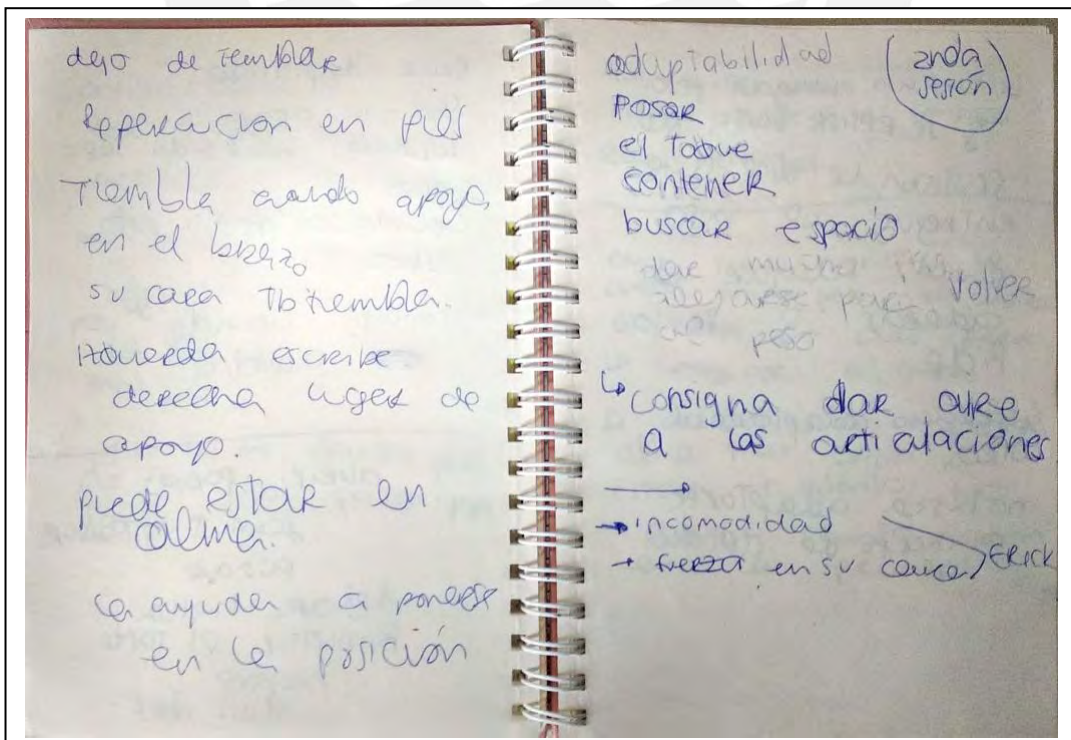 dejo de temblar
Repercucion en pies
Tiembla cuando apoyo,
en el brazo
su cara tb tiembla.
Izquierda escribe
derecha lugar de
apoyo.
puede estar en
calma.
la ayudan a ponerse
en la posición
adaptabilidad
(2nda sesión)
POSAR
el toque
contener
buscar espacio
dar mucha
alejarse para volver
peso
↳ consigna dar aire
a las articulaciones
→
→ incomodidad
→ fuerza en su
ERICK